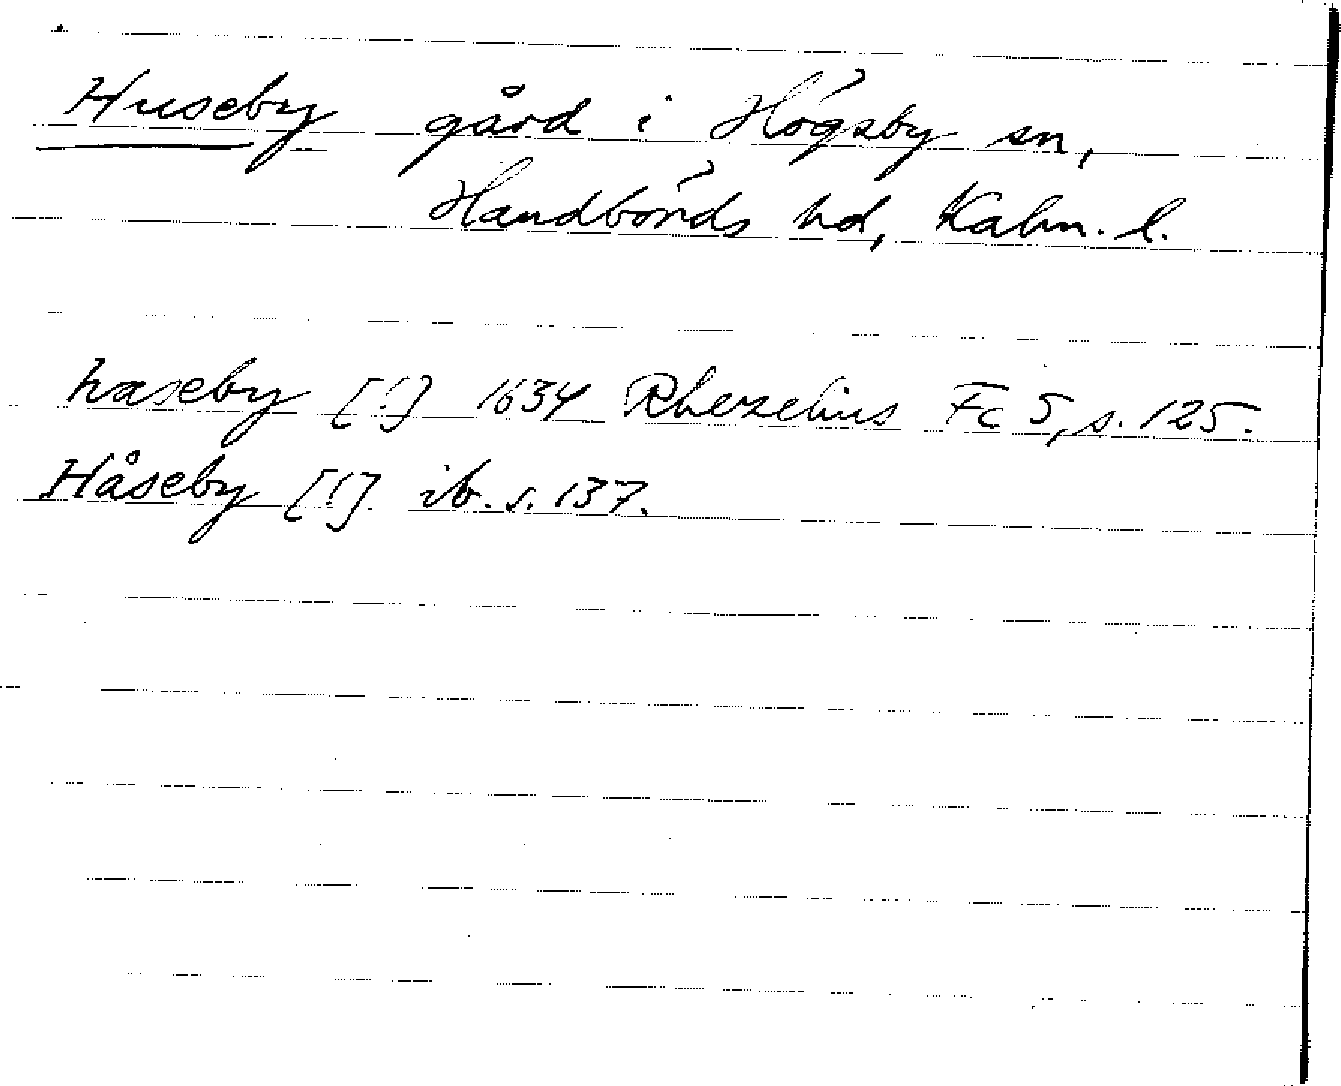 Huseby gård i Högsby sn,
Handbörds hd, Kalm. l.
haseby [!] 1634 Rhezelius Fc 5, s. 125.
Håseby [!] ib. s. 137.